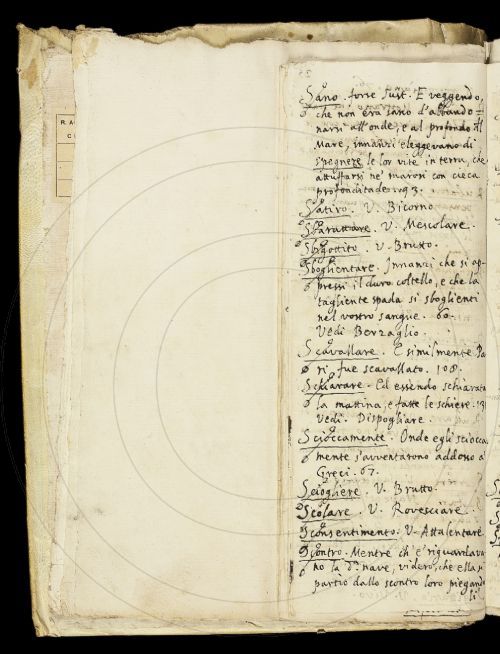 Sano. forse sust. E veggendo,
che non era sano d'abbando=
narsi all'onde, e al profondo del
Mare, innanzi eleggevano di
spegnere le lor vite in terra, che
attuffarsi ne' marosi con cieca
profondità de 1093.
Satiro. V. Bicorno
Sbarattare. V. Mescolare.
Sbigottito. V. Brutto.
Sboglientare. Innanzi che si ap-
pressi il duro coltello, e che la
tagliente spada si sboglienti
nel vostro sangue. 60.
Vedi Berzaglio.
Scavallare. E similmente Pa
ri fue scavallato. 108.
Schiarare. Ed essendo schiarata
la mattina, e fatte le schiere. 131
Vedi. Dispogliare.
Scioccamente. Onde egli sciocca
mente s'avventarono addosso a'
Greci. 67.
Sciogliere. V. Brutto.
Scolare. V. Rovesciare.
Sconsentimento. V. Attalentare.
Scontro. Mentre ch'e' riguardava
no la d.ª nave, videro, che ella si
partio dallo scontro loro piegando
li